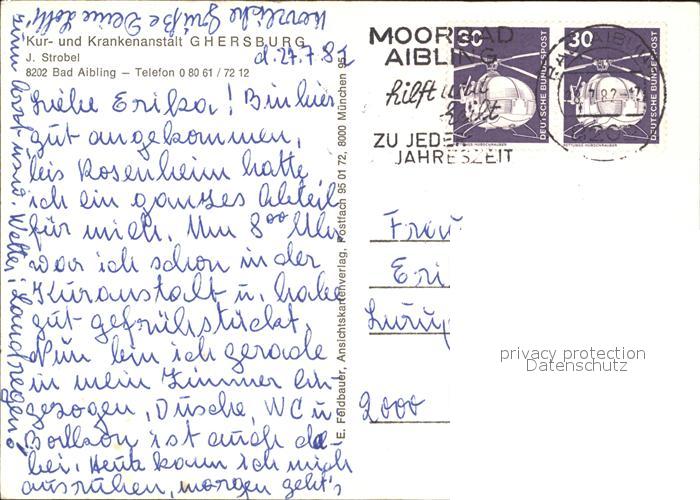 Kur- und Krankenanstalt GHERSBURG
J. Strobel
8202 Bad Aibling – Telefon 0 80 61 / 72 12
d. 27.7.82
Liebe Erika! Bin hier
gut angekommen,
bis Rosenheim hatte
ich ein ganzes Abteil
für mich. Um 8⁰⁰ Uhr
war ich schon in der
Kuranstalt u. habe
gut gefrühstückt.
Nun bin ich gerade
in mein Zimmer ein-
gezogen, Dusche, WC u.
Balkon ist auch da-
bei. Heute kann ich mich
ausruhen, morgen geht's
zum Arzt usw. Wetter: Landregen!
Herzliche Grüße Deine
E. Feldbauer, Ansichtskartenverlag, Postfach 95 01 72, 8000 München 95
MOORBAD
AIBLING
hilft und
heilt
ZU JEDER
JAHRESZEIT
30
DEUTSCHE BUNDESPOST
30
DEUTSCHE BUNDESPOST
Frau
Eri
2000
privacy protection
Datenschutz